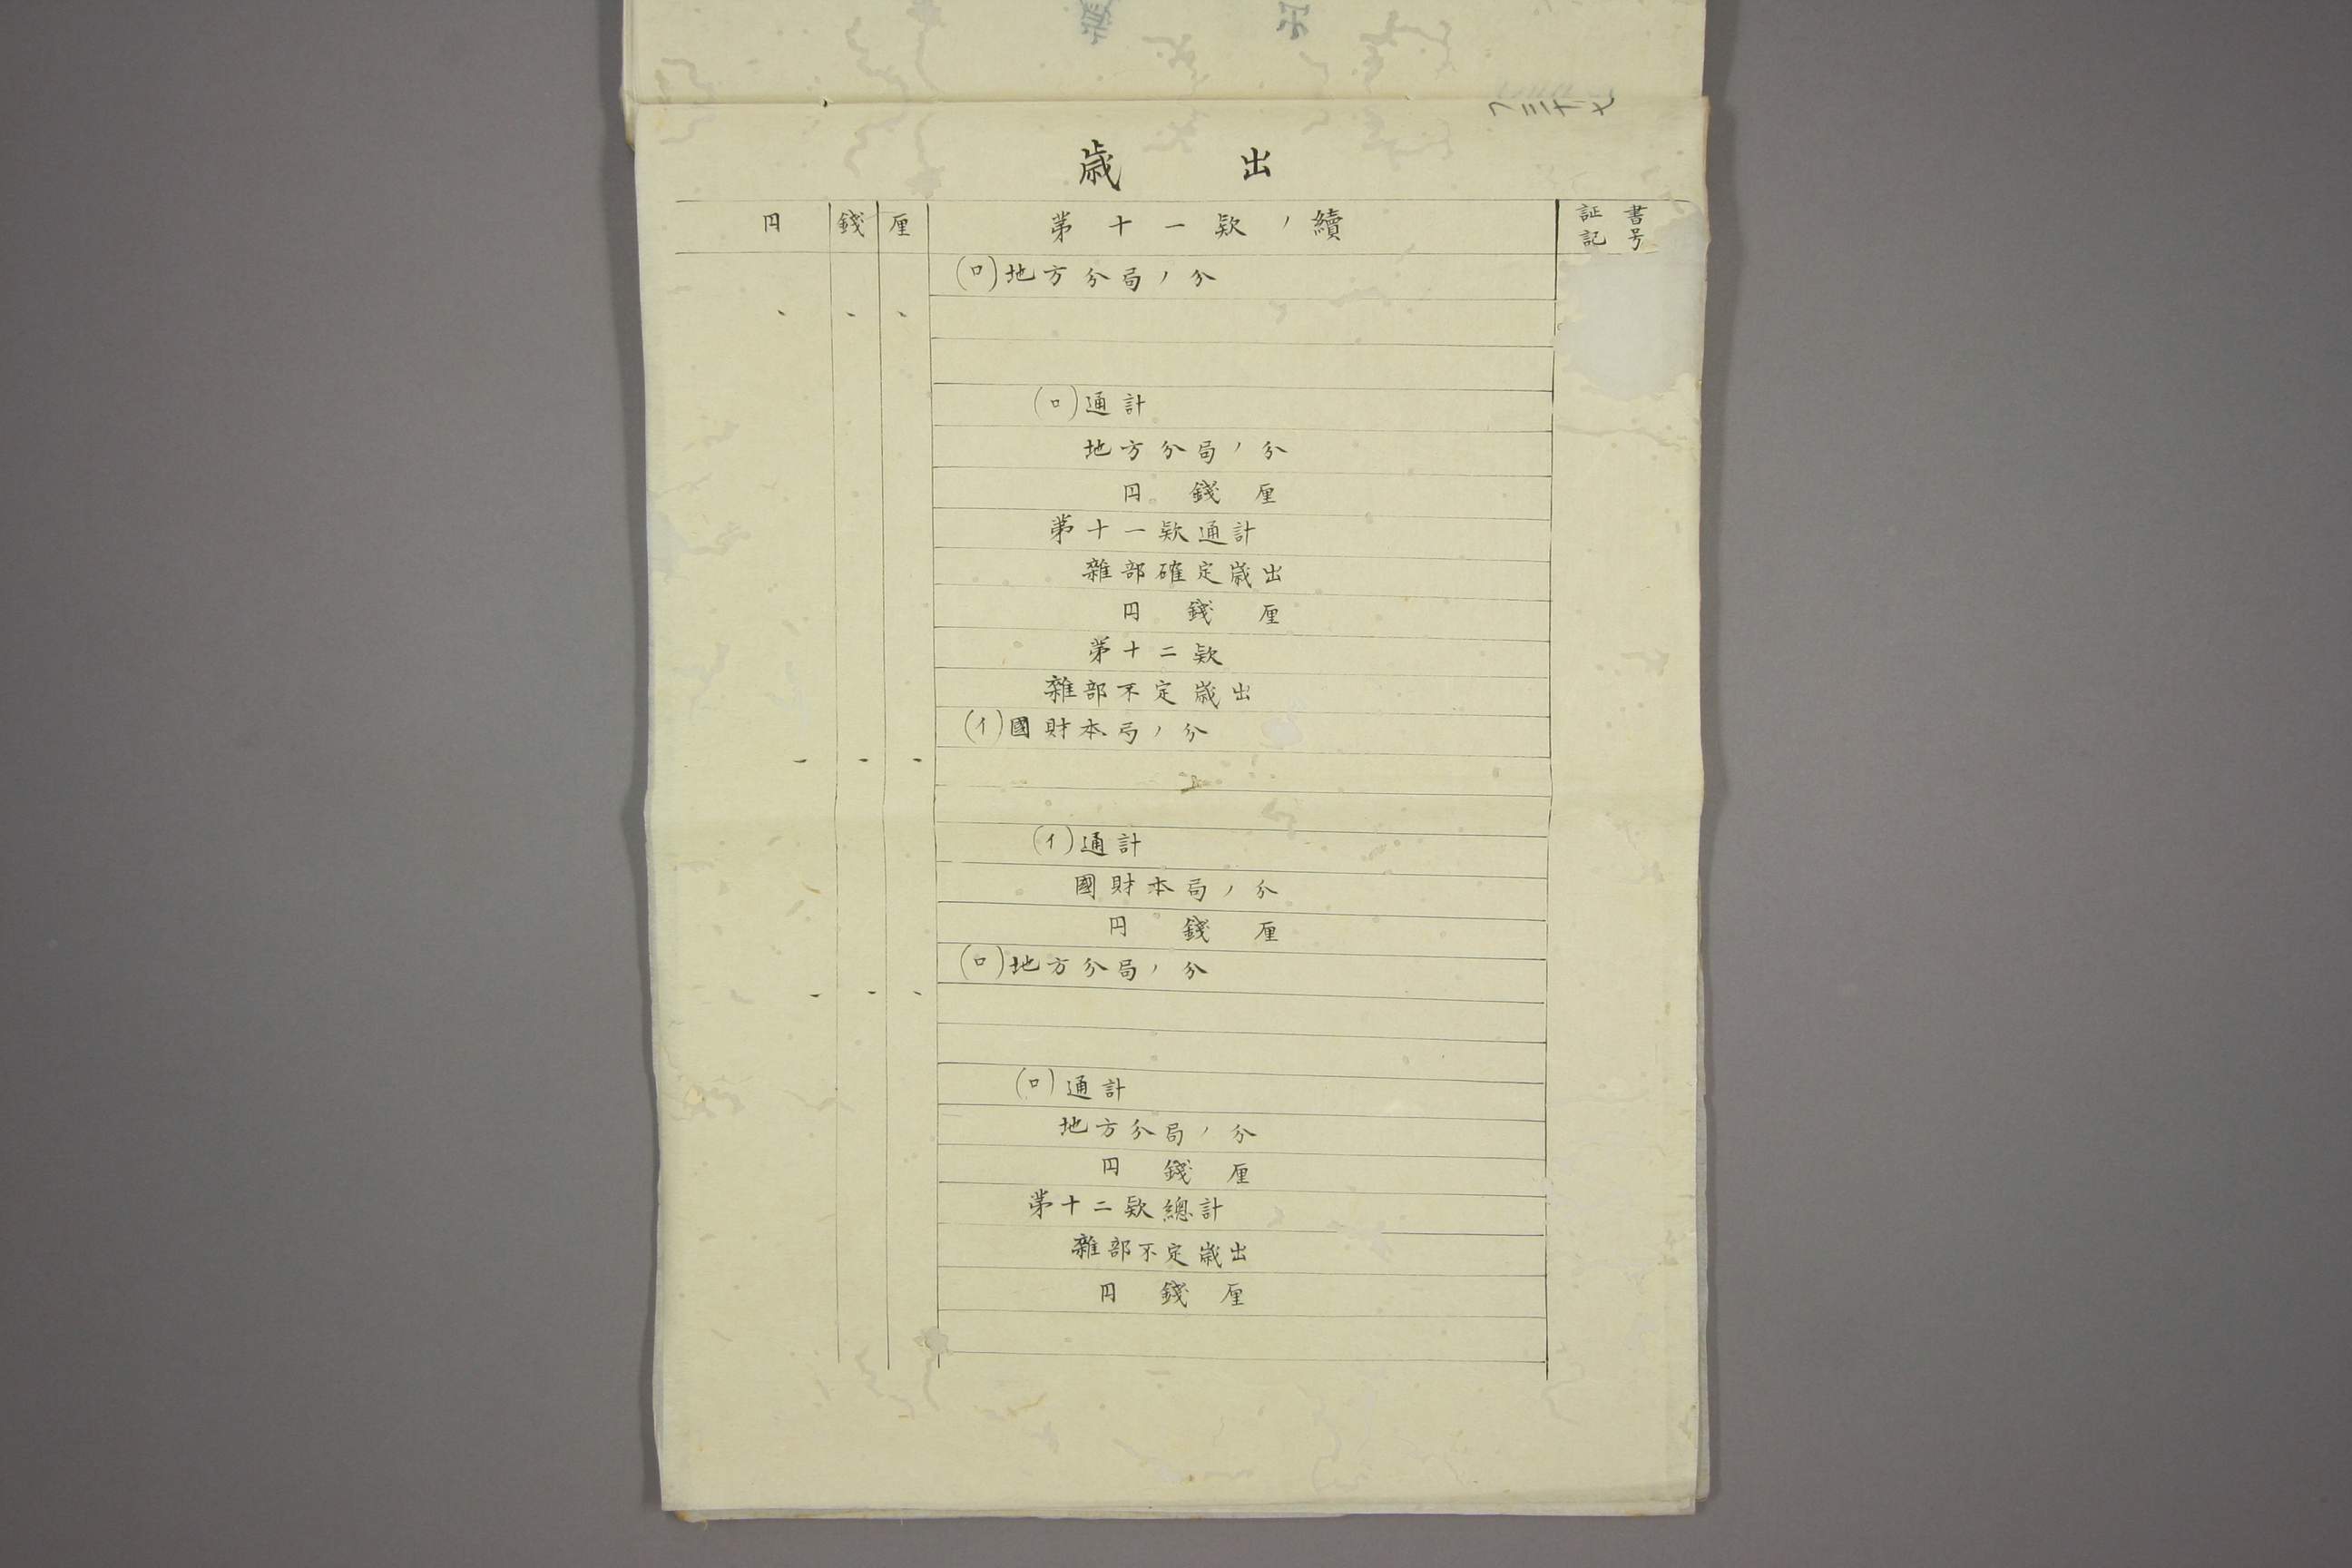 歳出
円 錢 厘 第十一欵ノ續 証書記号
(ロ)地方分局ノ分
(ロ)通計
地方分局ノ分
円 錢 厘
第十一欵通計
雜部確定歳出
円 錢 厘
第十二欵
雜部不定歳出
(イ)國財本局ノ分
(イ)通計
國財本局ノ分
円 錢 厘
(ロ)地方分局ノ分
(ロ)通計
地方分局ノ分
円 錢 厘
第十二欵總計
雜部不定歳出
円 錢 厘